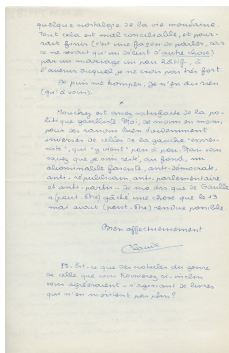 quelque nostalgie de la vie monacale.
Tout cela est mal considérable, et pour-
tant finis (c'est une façon de parler, car
ce ne serait qu'un salut d'autre chose)
par un mariage un peu hâtif, à
l'avenir auquel je ne crois pas très fort
Je puis me tromper. Je n'en dis rien
(qu'à vous).
*
Touchez est assez satisfaite de la po-
litique gaulliste. Moi, de moins en moins,
pour des raisons bien évidemment
inverses de celles de la gauche
qui "y vient" peu à peu. Mais vous
savez que je suis resté, au fond, un
abominable fasciste, anti-démocrate,
anti-républicain, anti-parlementaire
et anti-partis. Je me dis que de Gaulle
a (peut-être) gâché une chose que le 13
mai avait (peut-être) rendue possible.
Bien affectueusement
PS. Est-ce que des notules du genre
de celle que vous trouverez ci-inclus
vous agréeraient - s'agissant de livres
qui n'en méritent pas plus?